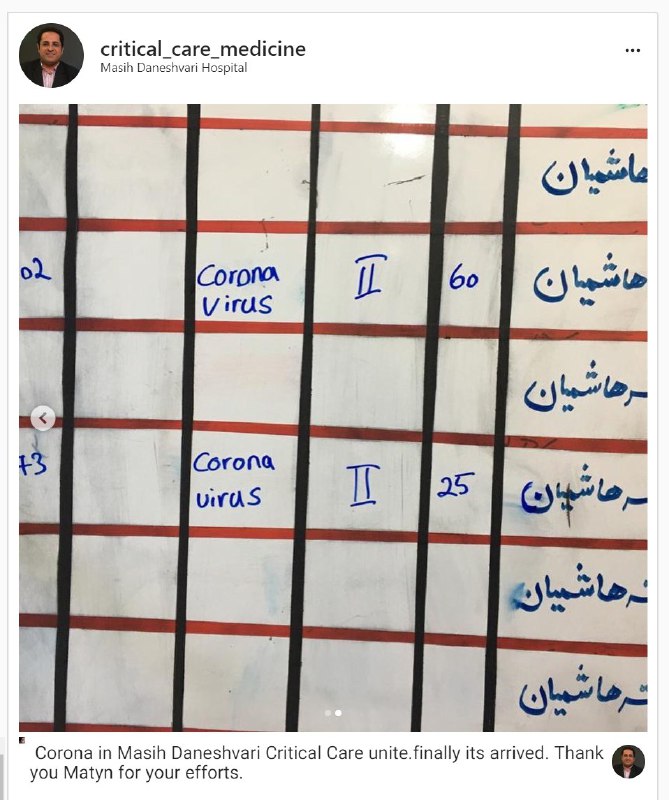 critical_care_medicine
Masih Daneshvari Hospital
هاشمیان
02 Corona virus II 60 هاشمیان
هاشمیان
+3 Corona virus II 25 هاشمیان
هاشمیان
هاشمیان
Corona in Masih Daneshvari Critical Care unite.finally its arrived. Thank
you Matyn for your efforts.